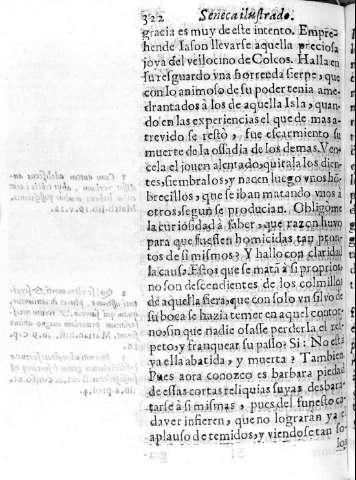 322 Seneca ilustrado.
gracia es muy de este intento. Empre-
hende Iason llevarse aquella preciosa
joya del vellocino de Colcos. Halla en
su resguardo vna horrenda sierpe, que
con lo animoso de su poder tenia ame-
drantados à los de aquella Isla, quan-
do en las experiencias el que de mas a-
trevido se restò, fue escarmiento su
muerte de la ossadia de los demas. Ven-
cela el jouen alentado, quitala los dien-
tes, siembralos, y nacen luego vnos hō-
brecillos, que se iban matando vnos à
otros, segun se producian. Obligòme
la curiosidad à saber, que razon huvo
para que fuessen homicidas tan pron-
tos de si mismos? Y hallo con claridad
la causa. Estos que se matā à si proprios
no son descendientes de los colmillos
de aquella fiera, que con solo vn silvo de
su boca se hazia temer en aquel contor-
no, sin que nadie osasse perderla el res-
peto, y franquear su passo? Si: No està
ya ella abatida, y muerta? Tambien.
Pues aora conozco es barbara piedad
de estas cortas reliquias suyas desbara-
tarse à si mismas, pues del funesto ca-
daver infieren, que no lograràn ya el
aplauso de temidos, y viendose tan so-
los